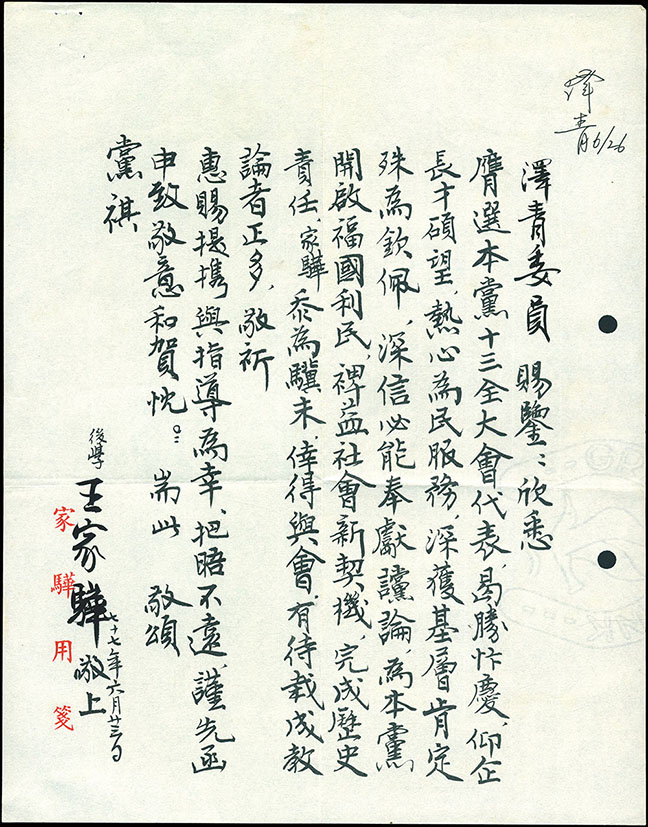 澤青委員 賜鑒：欣悉
膺選本黨十三全大會代表，曷勝忭慶，仰企
長才碩望，熱心為民服務，深獲基層肯定
殊為欽佩，深信必能奉獻讜論，為本黨
開啟福國利民，裨益社會新契機，完成歷史
責任，家驊忝為驥末，倖得與會，有待栽成教
論者正多，敬祈
惠賜提携與指導為幸，把晤不遠，謹先函
申致敬意和賀忱。耑此 敬頌
黨祺
後學 王家驊 敬上
七十七年六月廿三日
家驊用箋
澤青 6/26